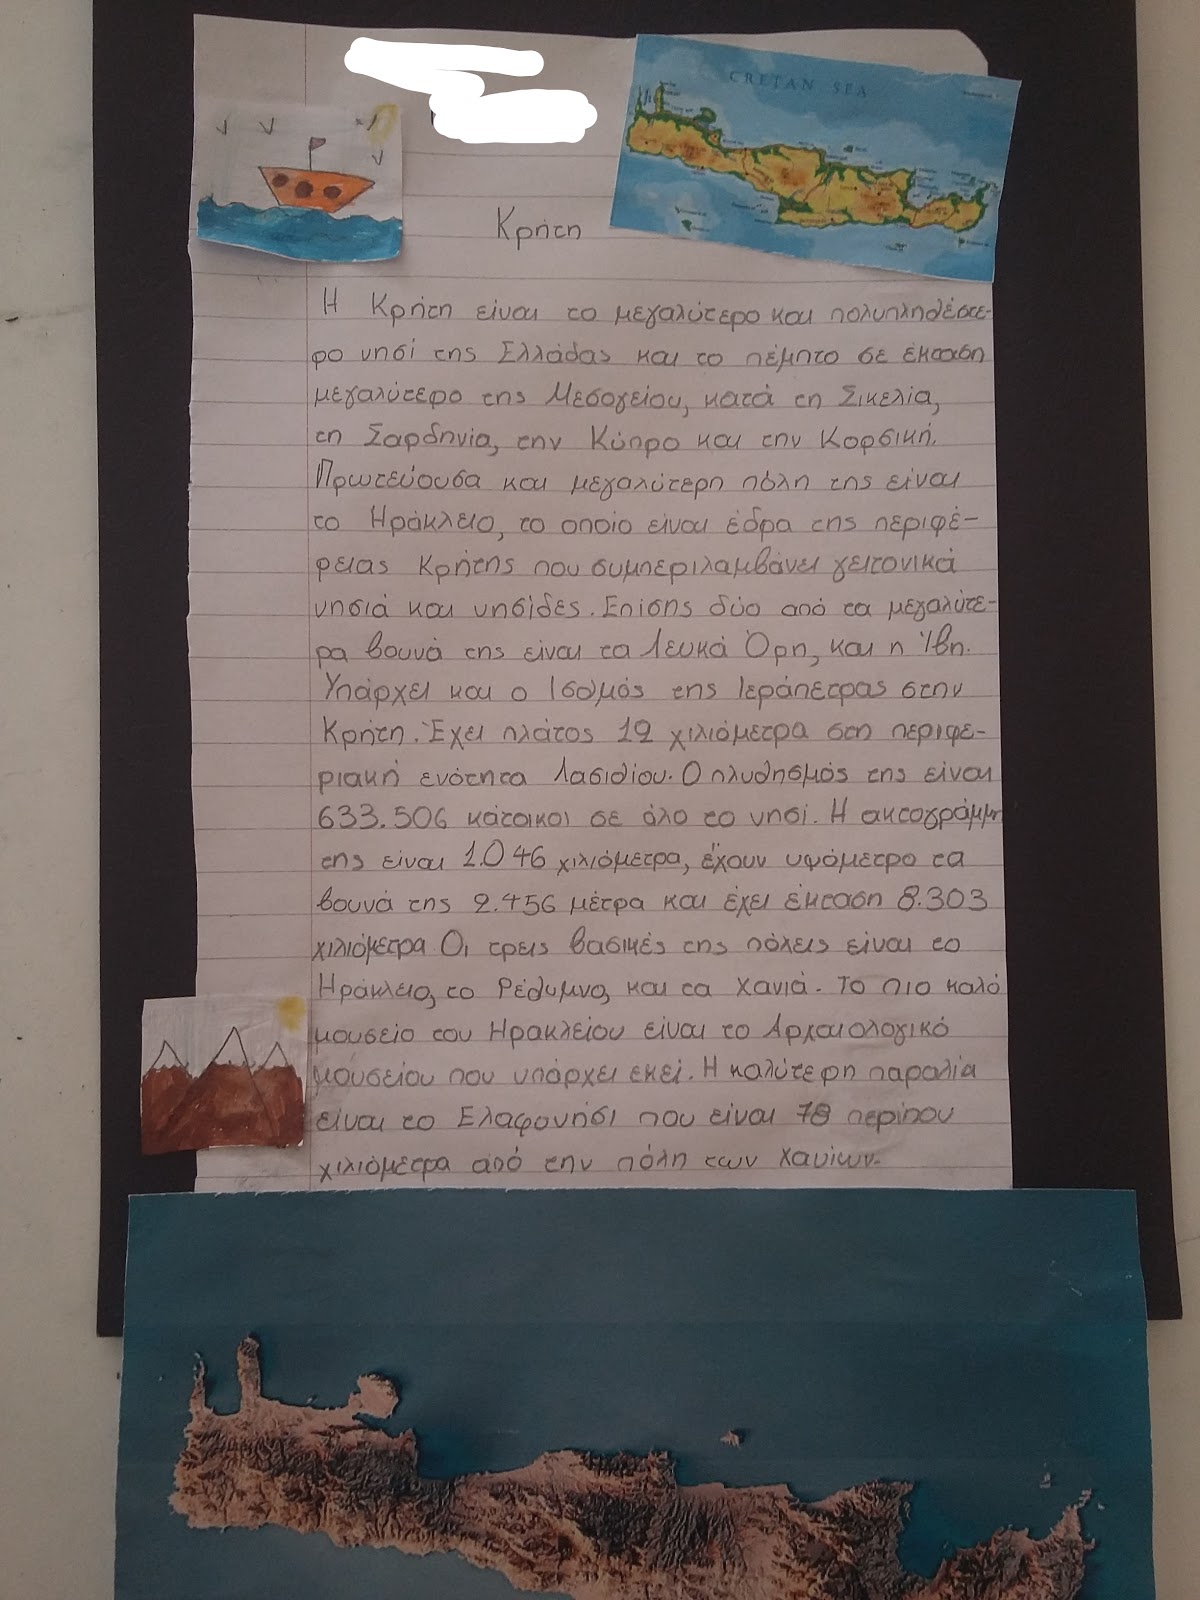 CRETAN SEA
Κρήτη
Η Κρήτη είναι το μεγαλύτερο και πολυπληθέστε-
ρο νησί της Ελλάδας και το πέμπτο σε έκταση
μεγαλύτερο της Μεσογείου, κατά τη Σικελία,
τη Σαρδηνία, την Κύπρο και την Κορσική.
Πρωτεύουσα και μεγαλύτερη πόλη της είναι
το Ηράκλειο, το οποίο είναι έδρα της περιφέ-
ρειας Κρήτης που συμπεριλαμβάνει γειτονικά
νησιά και νησίδες. Επίσης δύο από τα μεγαλύτε-
ρα βουνά της είναι τα Λευκά Όρη, και η Ίβη.
Υπάρχει και ο Ισθμός της Ιεράπετρας στην
Κρήτη. Έχει πλάτος 12 χιλιόμετρα στη περιφε-
ριακή ενότητα Λασιθίου. Ο πλυθησμός της είναι
633.506 κάτοικοι σε όλο το νησί. Η ακτογράμμη
της είναι 1.046 χιλιόμετρα, έχουν υψόμετρο τα
βουνά της 2.456 μέτρα και έχει έκταση 8.303
χιλιόμετρα Οι τρεις βασικές της πόλεις είναι το
Ηράκλειο, το Ρέθυμνο, και τα Χανιά. Το πιο καλό
μουσείο του Ηρακλείου είναι το Αρχαιολογικό
μουσείου που υπάρχει εκεί. Η καλύτερη παραλία
είναι το Ελαφονήσι που είναι 78 περίπου
χιλιόμετρα από την πόλη των Χανίων.